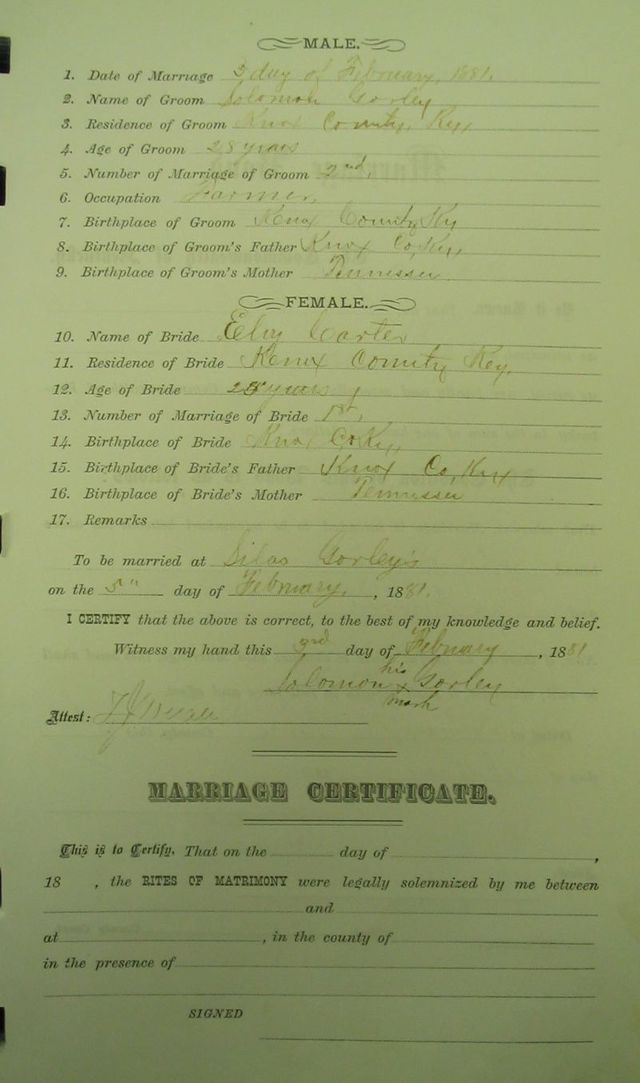 MALE.
1. Date of Marriage 3 day of February, 1881.
2. Name of Groom Solomon Gorley
3. Residence of Groom Knox County, Ky,
4. Age of Groom 28 years
5. Number of Marriage of Groom 2nd,
6. Occupation Farmer,
7. Birthplace of Groom Knox County, Ky
8. Birthplace of Groom's Father Knox Co, Ky,
9. Birthplace of Groom's Mother Tennessee
FEMALE.
10. Name of Bride Carter
11. Residence of Bride Knox County Key.
12. Age of Bride years
13. Number of Marriage of Bride 1st,
14. Birthplace of Bride Knox Co Ky,
15. Birthplace of Bride's Father Knox Co, Ky
16. Birthplace of Bride's Mother Tennessee
17. Remarks
To be married at Silas Gorley's
on the 5" day of February, , 1881.
I CERTIFY that the above is correct, to the best of my knowledge and belief.
Witness my hand this 3rd day of February , 1881
his
Solomon x Gorley
mark
Attest:
MARRIAGE CERTIFICATE.
This is to Certify, That on the day of ,
18 , the RITES OF MATRIMONY were legally solemnized by me between
and
at , in the county of
in the presence of
SIGNED